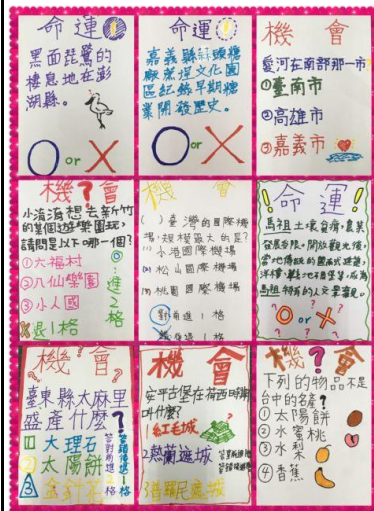 命運!
黑面琵鷺的
棲息地在澎
湖縣。
O or X
命運!
嘉義縣蒜頭糖
廠蔗埕文化園
區紅絲早期糖
業開發歷史。
O or X
機會
愛河在南部那一市?
①臺南市
②高雄市
③嘉義市
機?會
小滴滴想去新竹
的某個遊樂園玩,
請問是以下哪一個?
①六福村
②八仙樂園
③小人國
O:進2格
X退1格
機會
( )臺灣的國際機
場,規模最大的是?
小港國際機場
(2)松山國際機場
(3)桃園國際機場
對前進1格
後退1格
!命運!
馬祖土壤貧瘠,農業
發展有限。開放觀光後,
當地傳統的閩式建築、
洋樓、戰地不是堡壘,成為
馬祖特有的人文景觀。
O or X
機會?
臺東縣太麻里
盛產什麼?
1大理石
2太陽餅
3金針花
答對前進2格
答錯倒退1格
機會
安平古堡在荷西時期
叫什麼?
1紅毛城
2熱蘭遮城
3普羅民遮城
機?會
下列的物品不是
台中的名產?
①太陽餅
②水蜜桃
③水梨
④香蕉